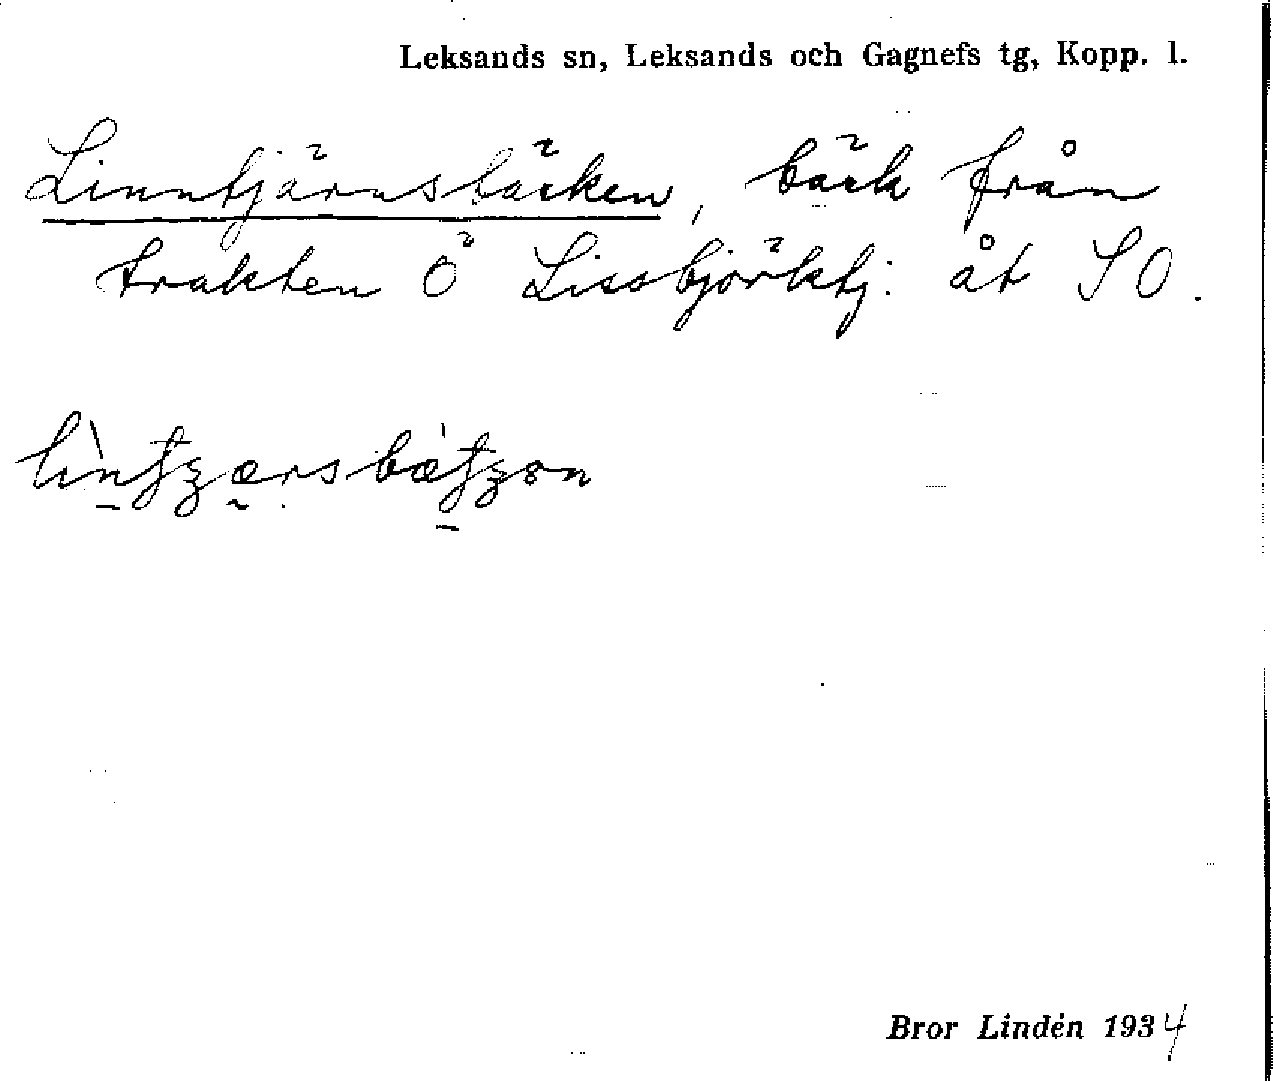 Leksands sn, Leksands och Gagnefs tg, Kopp. l.
Linntjärnsbäcken, bäck från
trakten Ö Lissbjörktj. åt SO.
Bror Lindén 1934